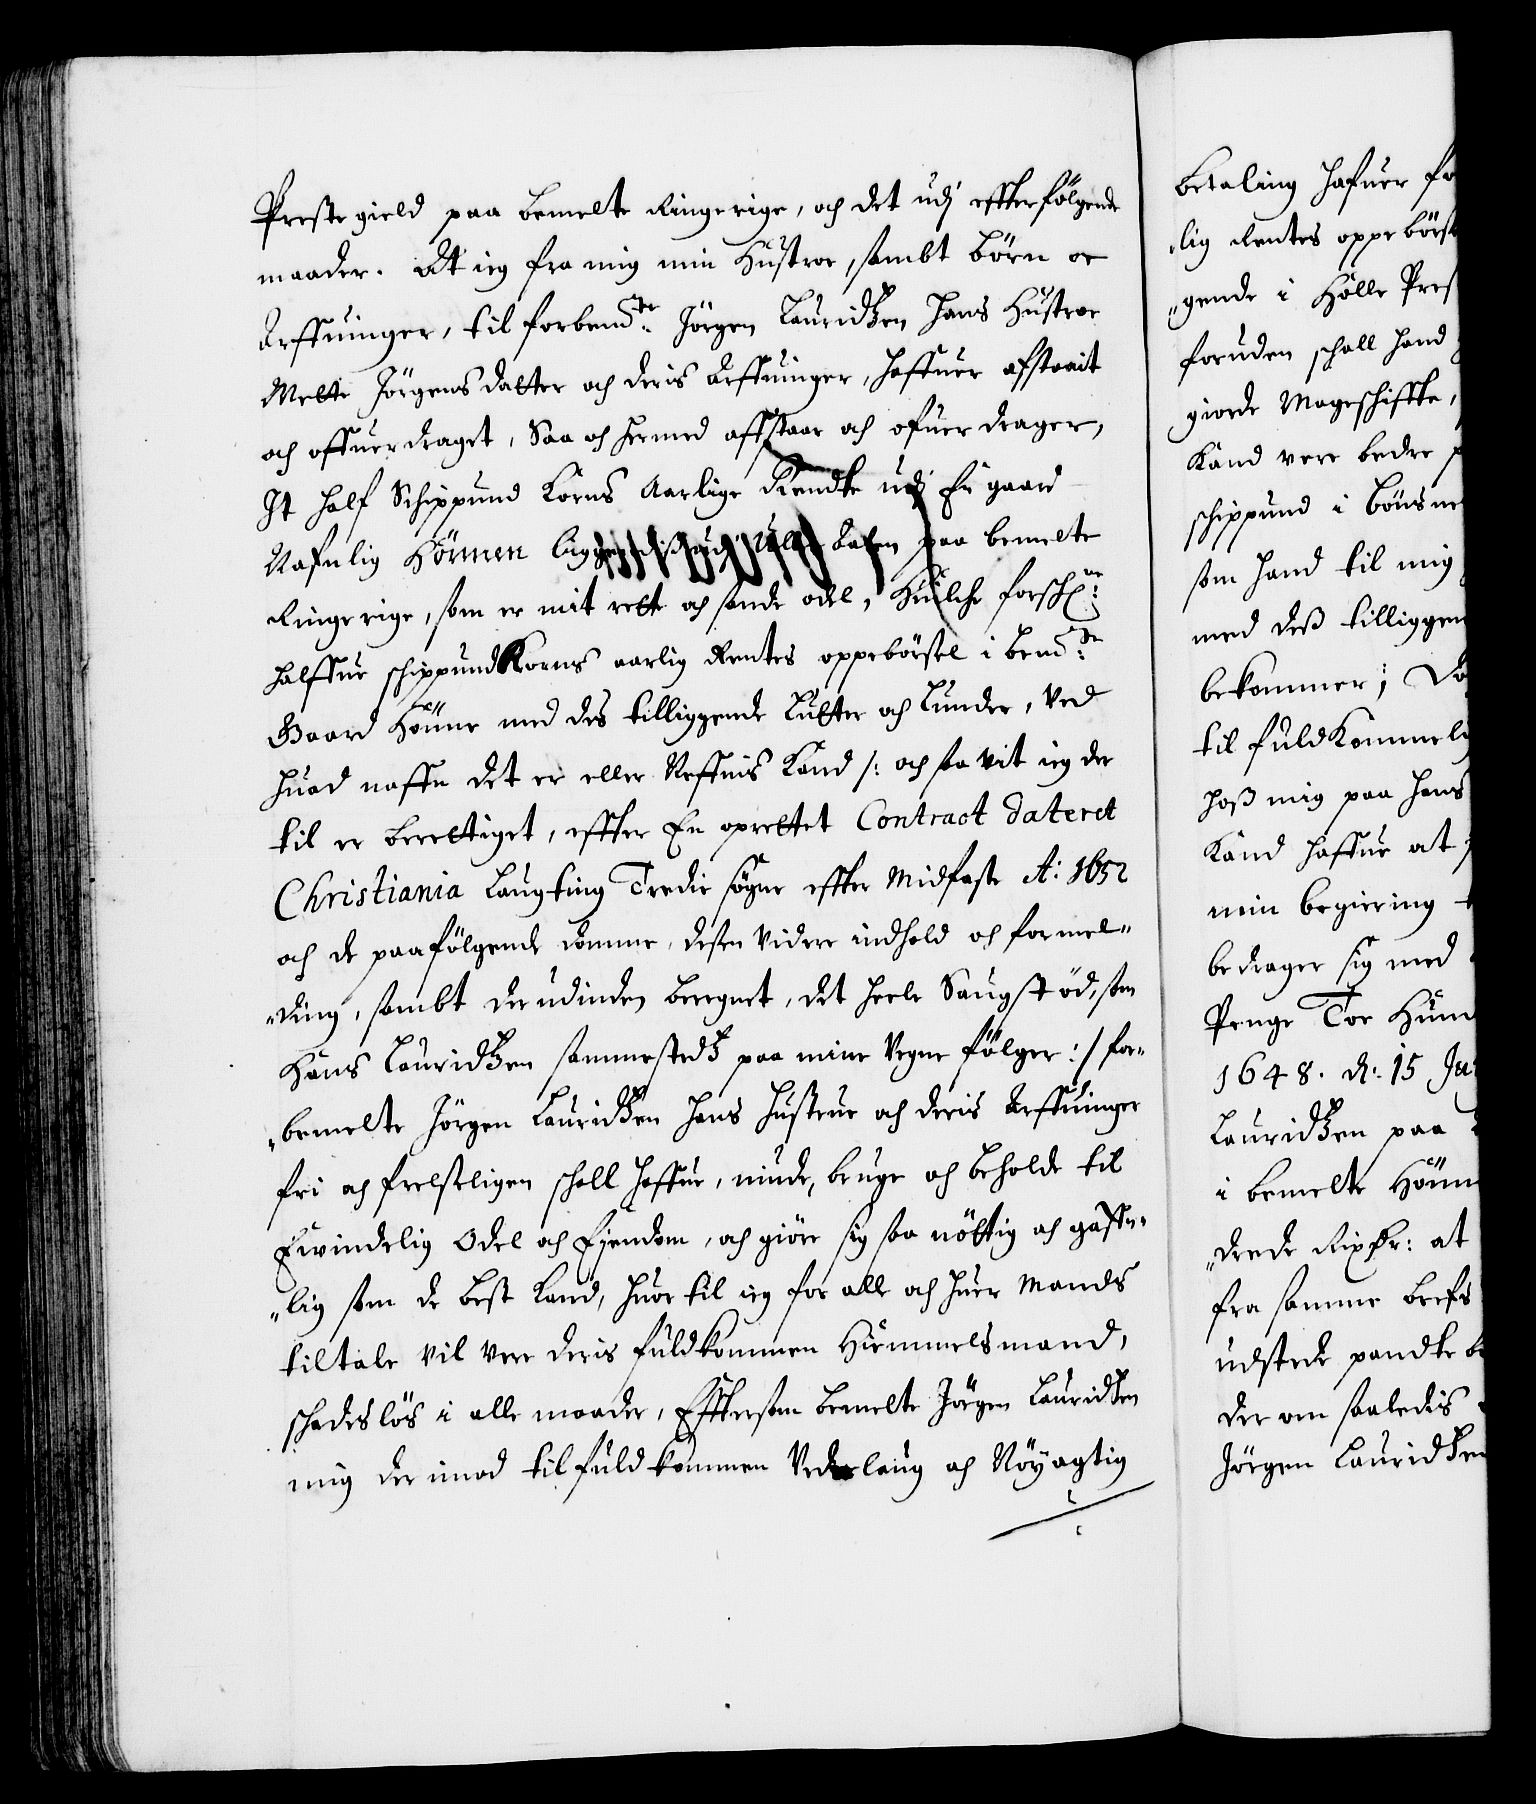 Prestegield paa bemelte Ringerige, och det udj effterfölgende
maader. At ieg fra mig min Hustroe, sambt börn oc
Arffuinger, til forbemte: Jörgen Lauridtzen hans Hustroe
Mette Jörgensdatter och deris Arffuinger, haffuer afstaait
och offuerdraget, Saa och hermed affstaar och ofuerdrager,
It half Schippund Korns Aarlige Rendte udj En gaard
Nafnlig Hörmen paa bemelte
Ringerige, som er mit rette och sande odel, Huilche forsch:ne
halffue schippund Korns aarlig Rentes oppebörsel i bemte:
Gaard Hönne med des tilliggende Lutter och Lunder, ved
huad naffn det er eller Neffnis Kand /: och saa vit ieg der
til er berettiget, effter En oprettet Contract dateret
Christiania Laugting Tredie søgne effter Midfaste Ao: 1652
och de paafölgende domme, desen videre indhold och formel„
„ding, sambt derudinden beregnet, det heele Saugstöd, som
Hans Lauridtzen sammestedtz paa mine Vegne fölger :/ for„
„bemelte Jörgen Lauridtzen hans hustrue och deris Arffuinger
fri och frelseligen schall haffue, niude, bruge och beholde til
Ewindelig Odel och Ejendom, och giöre sig saa nöttig och gaffn„
„lig som de best Kand, huor til ieg for alle och huer Mands
tiltale vil vere deris fuldkommen Hiemmelsmand,
schadeslös i alle maader, Efftersom bemelte Jörgen Lauridtzen
mig der imod til fuldkommen Vederlaug och Nöyagtig
betaling hafuer
„lig Rentes oppebörs
„gende i Hölle Pres
foruden schall hand
giorde Mageschiffte,
Kand vere bedre
schippund i Bönsne
som hand til mig
med deß tilliggen
bekommer;
til fuldKommeli
hoß mig paa hans
Kand haffue at
min begiering
bedrager sig med
Penge Toe Hun
1648. d: 15 Ju
Lauridtzen paa
i bemelte Hönn
„drede Rixdr: at
fra samme brefs
udstede pandte b
der om saaledis
Jörgen Lauridtzen